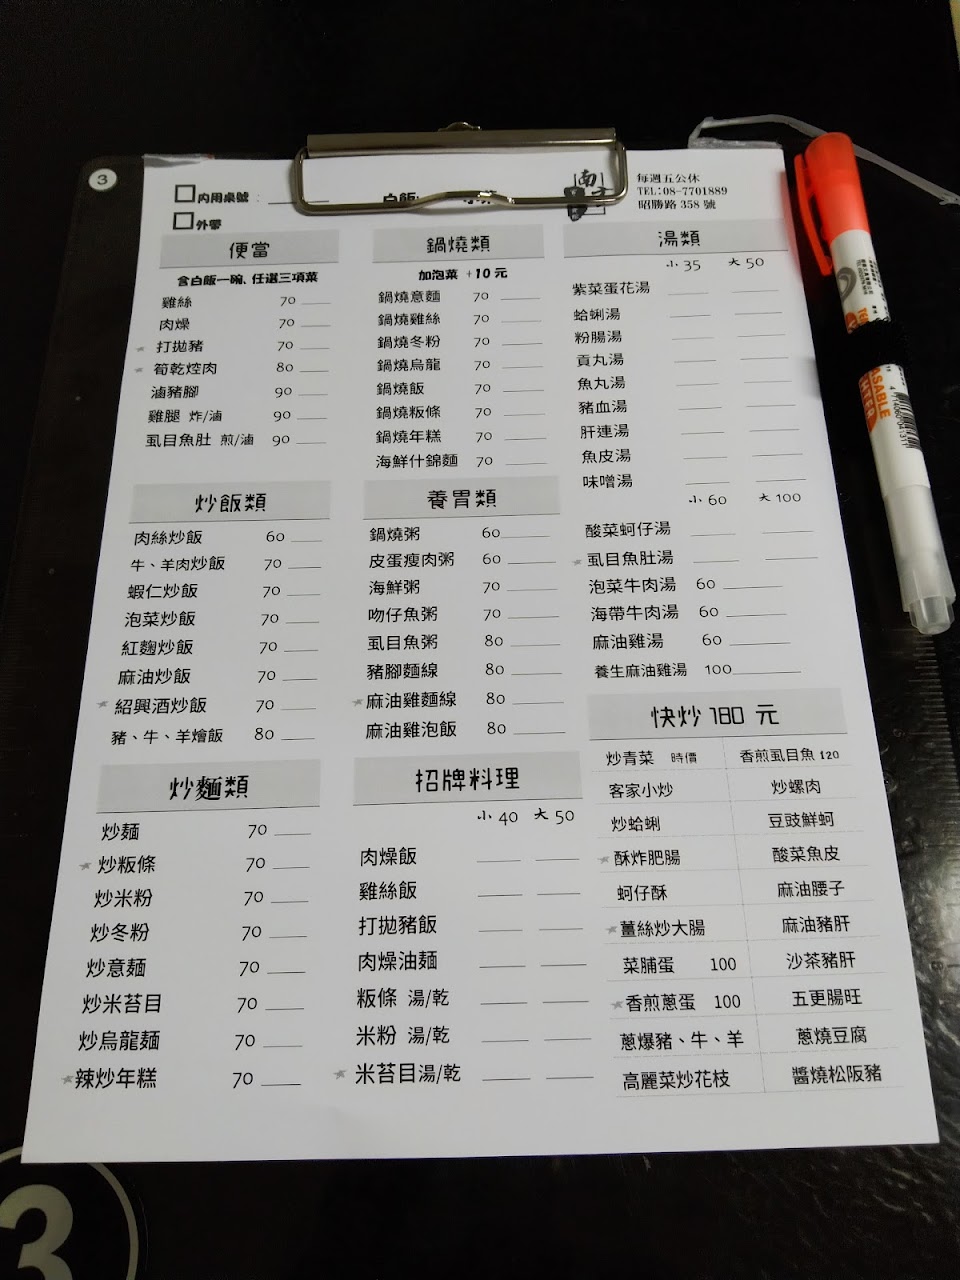 3
內用桌號：
外帶
白飯
南
每週五公休
TEL:08-7701889
昭勝路 358 號
便當
含白飯一碗、任選三項菜
雞絲 70
肉燥 70
打拋豬 70
筍乾焢肉 80
滷豬腳 90
雞腿 炸/滷 90
虱目魚肚 煎/滷 90
炒飯類
肉絲炒飯 60
牛、羊肉炒飯 70
蝦仁炒飯 70
泡菜炒飯 70
紅麴炒飯 70
麻油炒飯 70
紹興酒炒飯 70
豬、牛、羊燴飯 80
炒麵類
炒麵 70
炒粄條 70
炒米粉 70
炒冬粉 70
炒意麵 70
炒米苔目 70
炒烏龍麵 70
辣炒年糕 70
鍋燒類
加泡菜 +10 元
鍋燒意麵 70
鍋燒雞絲 70
鍋燒冬粉 70
鍋燒烏龍 70
鍋燒飯 70
鍋燒粄條 70
鍋燒年糕 70
海鮮什錦麵 70
養胃類
鍋燒粥 60
皮蛋瘦肉粥 60
海鮮粥 70
吻仔魚粥 70
虱目魚粥 80
豬腳麵線 80
麻油雞麵線 80
麻油雞泡飯 80
招牌料理
小 40 大 50
肉燥飯
雞絲飯
打拋豬飯
肉燥油麵
粄條 湯/乾
米粉 湯/乾
米苔目湯/乾
湯類
小 35 大 50
紫菜蛋花湯
蛤蜊湯
粉腸湯
貢丸湯
魚丸湯
豬血湯
肝連湯
魚皮湯
味噌湯
小 60 大 100
酸菜蚵仔湯
虱目魚肚湯
泡菜牛肉湯 60
海帶牛肉湯 60
麻油雞湯 60
養生麻油雞湯 100
快炒 180 元
炒青菜 時價 香煎虱目魚 120
客家小炒 炒螺肉
炒蛤蜊 豆豉鮮蚵
酥炸肥腸 酸菜魚皮
蚵仔酥 麻油腰子
薑絲炒大腸 麻油豬肝
菜脯蛋 100 沙茶豬肝
香煎蔥蛋 100 五更腸旺
蔥爆豬、牛、羊 蔥燒豆腐
高麗菜炒花枝 醬燒松阪豬
3